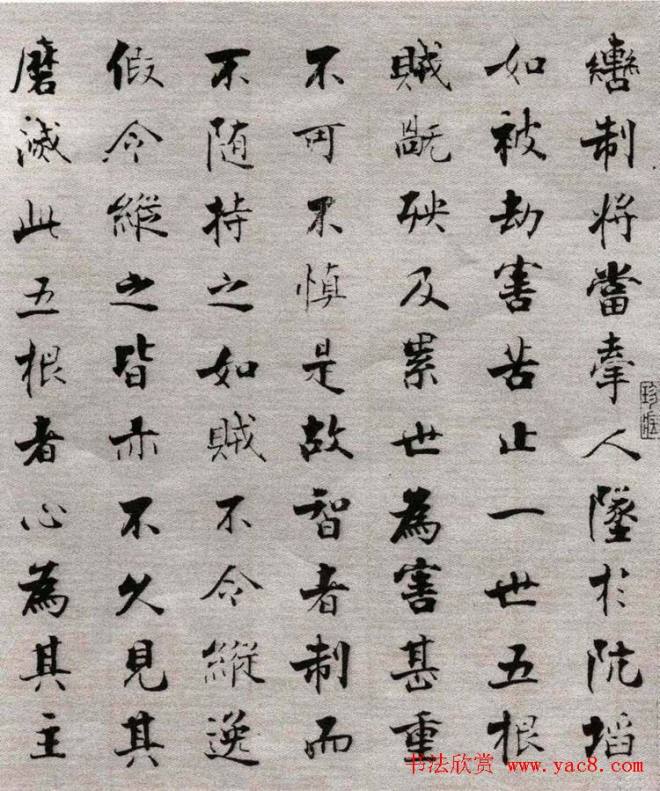 轡制將當牽人墜於阬埳
如被劫害苦止一世五根
賊禍殃及累世為害甚重
不可不慎是故智者制而
不隨持之如賊不令縱逸
假令縱之皆亦不久見其
磨滅此五根者心為其主
书法欣赏 www.yac8.com